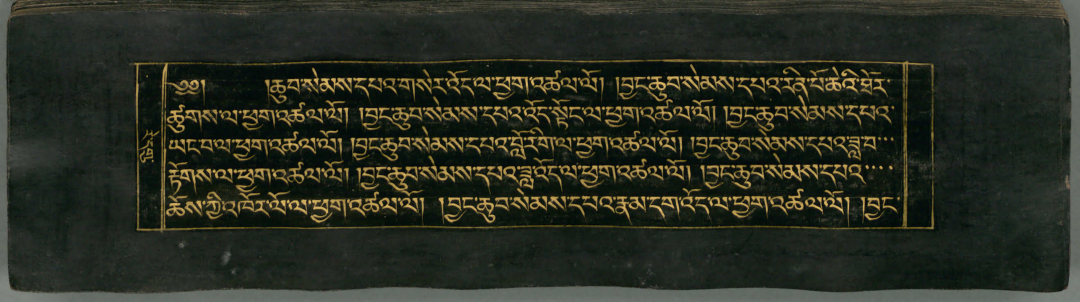 ༄༅། །ཆུབ་སེམས་དཔའ་གསེར་འོད་ལ་ཕྱག་འཚལ་ལོ། །བྱང་ཆུབ་སེམས་དཔའ་རིན་པོ་ཆེའི་ཐེར་
ཚུགས་ལ་ཕྱག་འཚལ་ལོ། །བྱང་ཆུབ་སེམས་དཔའ་འོད་སྟོང་ལ་ཕྱག་འཚལ་ལོ། །བྱང་ཆུབ་སེམས་དཔའ་
ཡང་བ་ལ་ཕྱག་འཚལ་ལོ། །བྱང་ཆུབ་སེམས་དཔའ་བློ་རིག་ལ་ཕྱག་འཚལ་ལོ། །བྱང་ཆུབ་སེམས་དཔའ་ཟླ་བ་
རྟོགས་ལ་ཕྱག་འཚལ་ལོ། །བྱང་ཆུབ་སེམས་དཔའ་ཟླ་འོད་ལ་ཕྱག་འཚལ་ལོ། །བྱང་ཆུབ་སེམས་དཔའ་
ཆོས་ཀྱི་འཁོར་ལོ་ལ་ཕྱག་འཚལ་ལོ། །བྱང་ཆུབ་སེམས་དཔའ་རྣམ་དག་འོད་ལ་ཕྱག་འཚལ་ལོ། །བྱང་